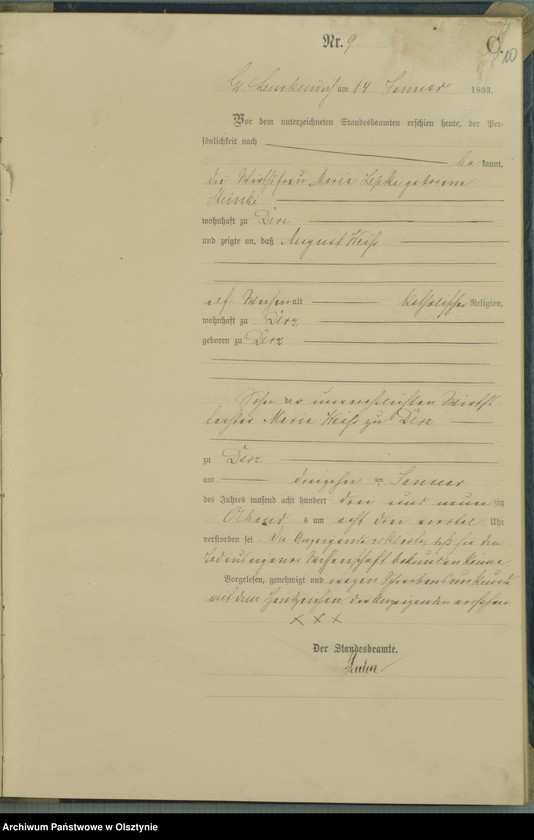 Nr. 9
C.
10
Gr. Lemkendorf am 14. Januar 1893.
Vor dem unterzeichneten Standesbeamten erschien heute, der Per-
sönlichkeit nach
be kannt,
die Wirthsfrau Maria Lipka geborene
Steinki
wohnhaft zu Derz
und zeigte an, daß August Weiß
elf Wochen alt katholischer Religion,
wohnhaft zu Derz
geboren zu Derz
Sohn der unverehelichten Wirths-
tochter Maria Weiß zu Derz
zu Derz
am dreizehn ten Januar
des Jahres tausend acht hundert drei und neun zig
Abend s um acht drei viertel Uhr
verstorben sei. Die Anzeigende erklärte, daß sie den
Tod aus eigener Wissenschaft bekunden könne
Vorgelesen, genehmigt und wegen Schreibensunkunde
mit dem Handzeichen der Anzeigenden versehen
x x x
Der Standesbeamte.
Archiwum Państwowe w Olsztynie